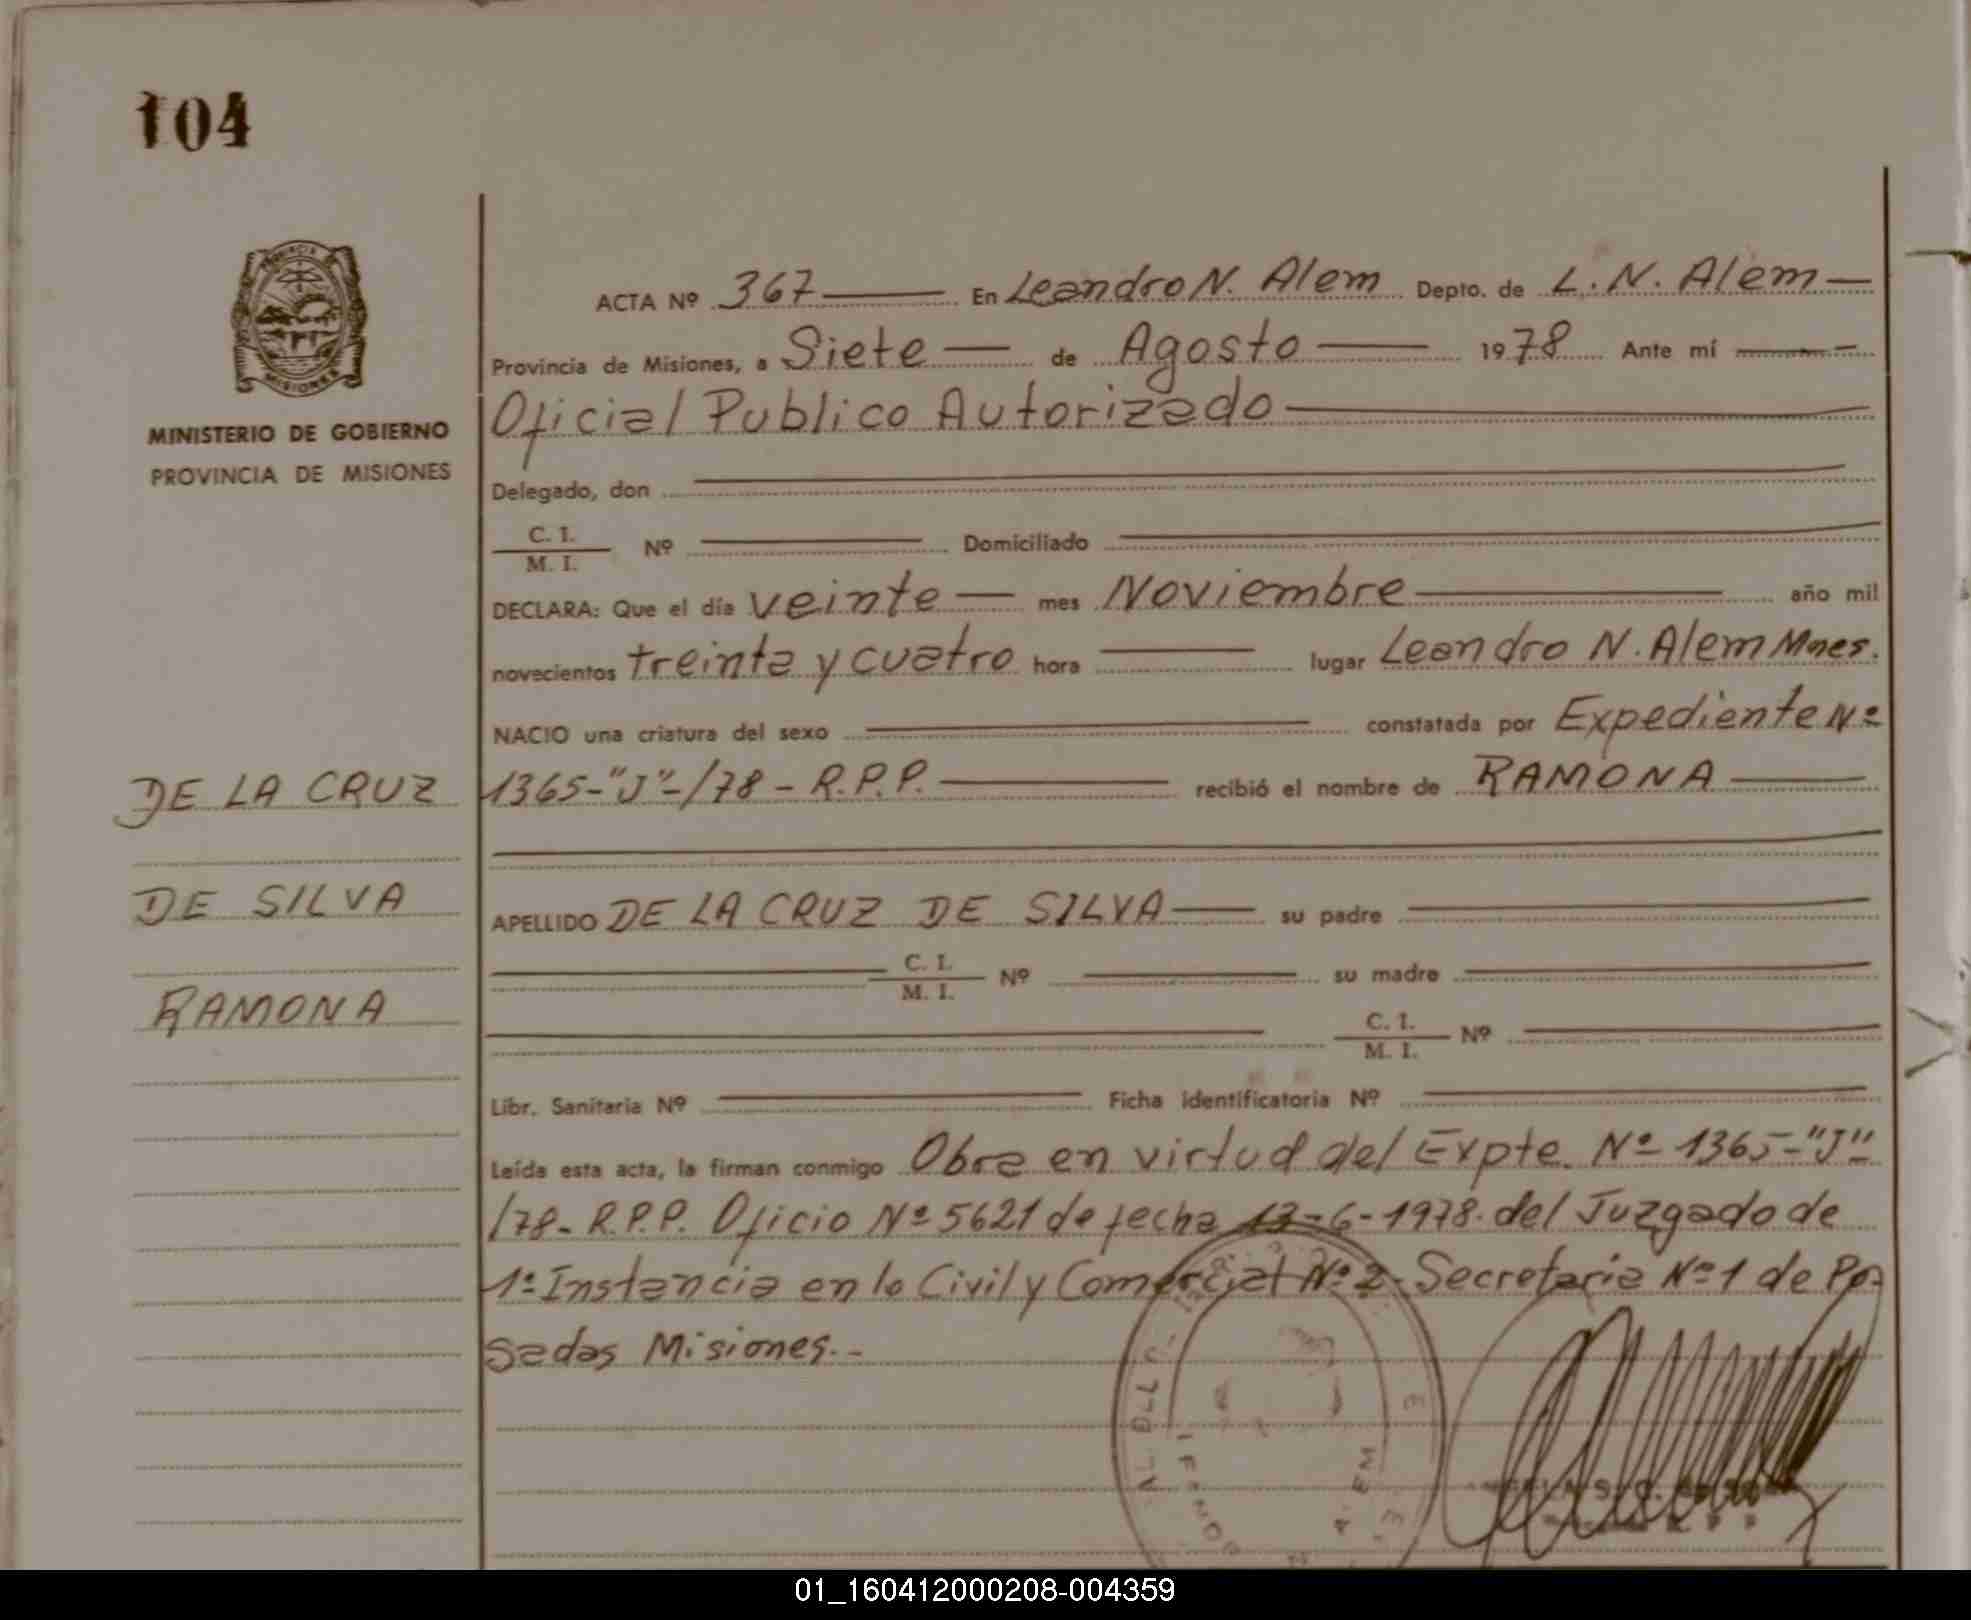 104
PROVINCIA DE
MISIONES
MINISTERIO DE GOBIERNO
PROVINCIA DE MISIONES
ACTA Nº 367 En Leandro N. Alem Depto. de L. N. Alem
Provincia de Misiones, a Siete de Agosto 1978 Ante mí
Oficial Publico Autorizado
Delegado, don
C. I. / M. I. Nº Domiciliado
DECLARA: Que el día veinte mes Noviembre año mil
novecientos treinta y cuatro hora lugar Leandro N. Alem Mnes.
NACIO una criatura del sexo constatada por Expediente Nº
1365-"J"-/78 - R.P.P. recibió el nombre de RAMONA
APELLIDO DE LA CRUZ DE SILVA su padre
C. I. / M. I. Nº su madre
C. I. / M. I. Nº
Libr. Sanitaria Nº Ficha identificatoria Nº
Leída esta acta, la firman conmigo Obra en virtud del Expte. Nº 1365-"J"
/78- R.P.P. Oficio Nº 5621 de fecha 13-6-1978. del Juzgado de
1º Instancia en lo Civil y Comercial Nº 2- Secretaria Nº 1 de Po-
sadas Misiones.-
DE LA CRUZ
DE SILVA
RAMONA
01_160412000208-004359